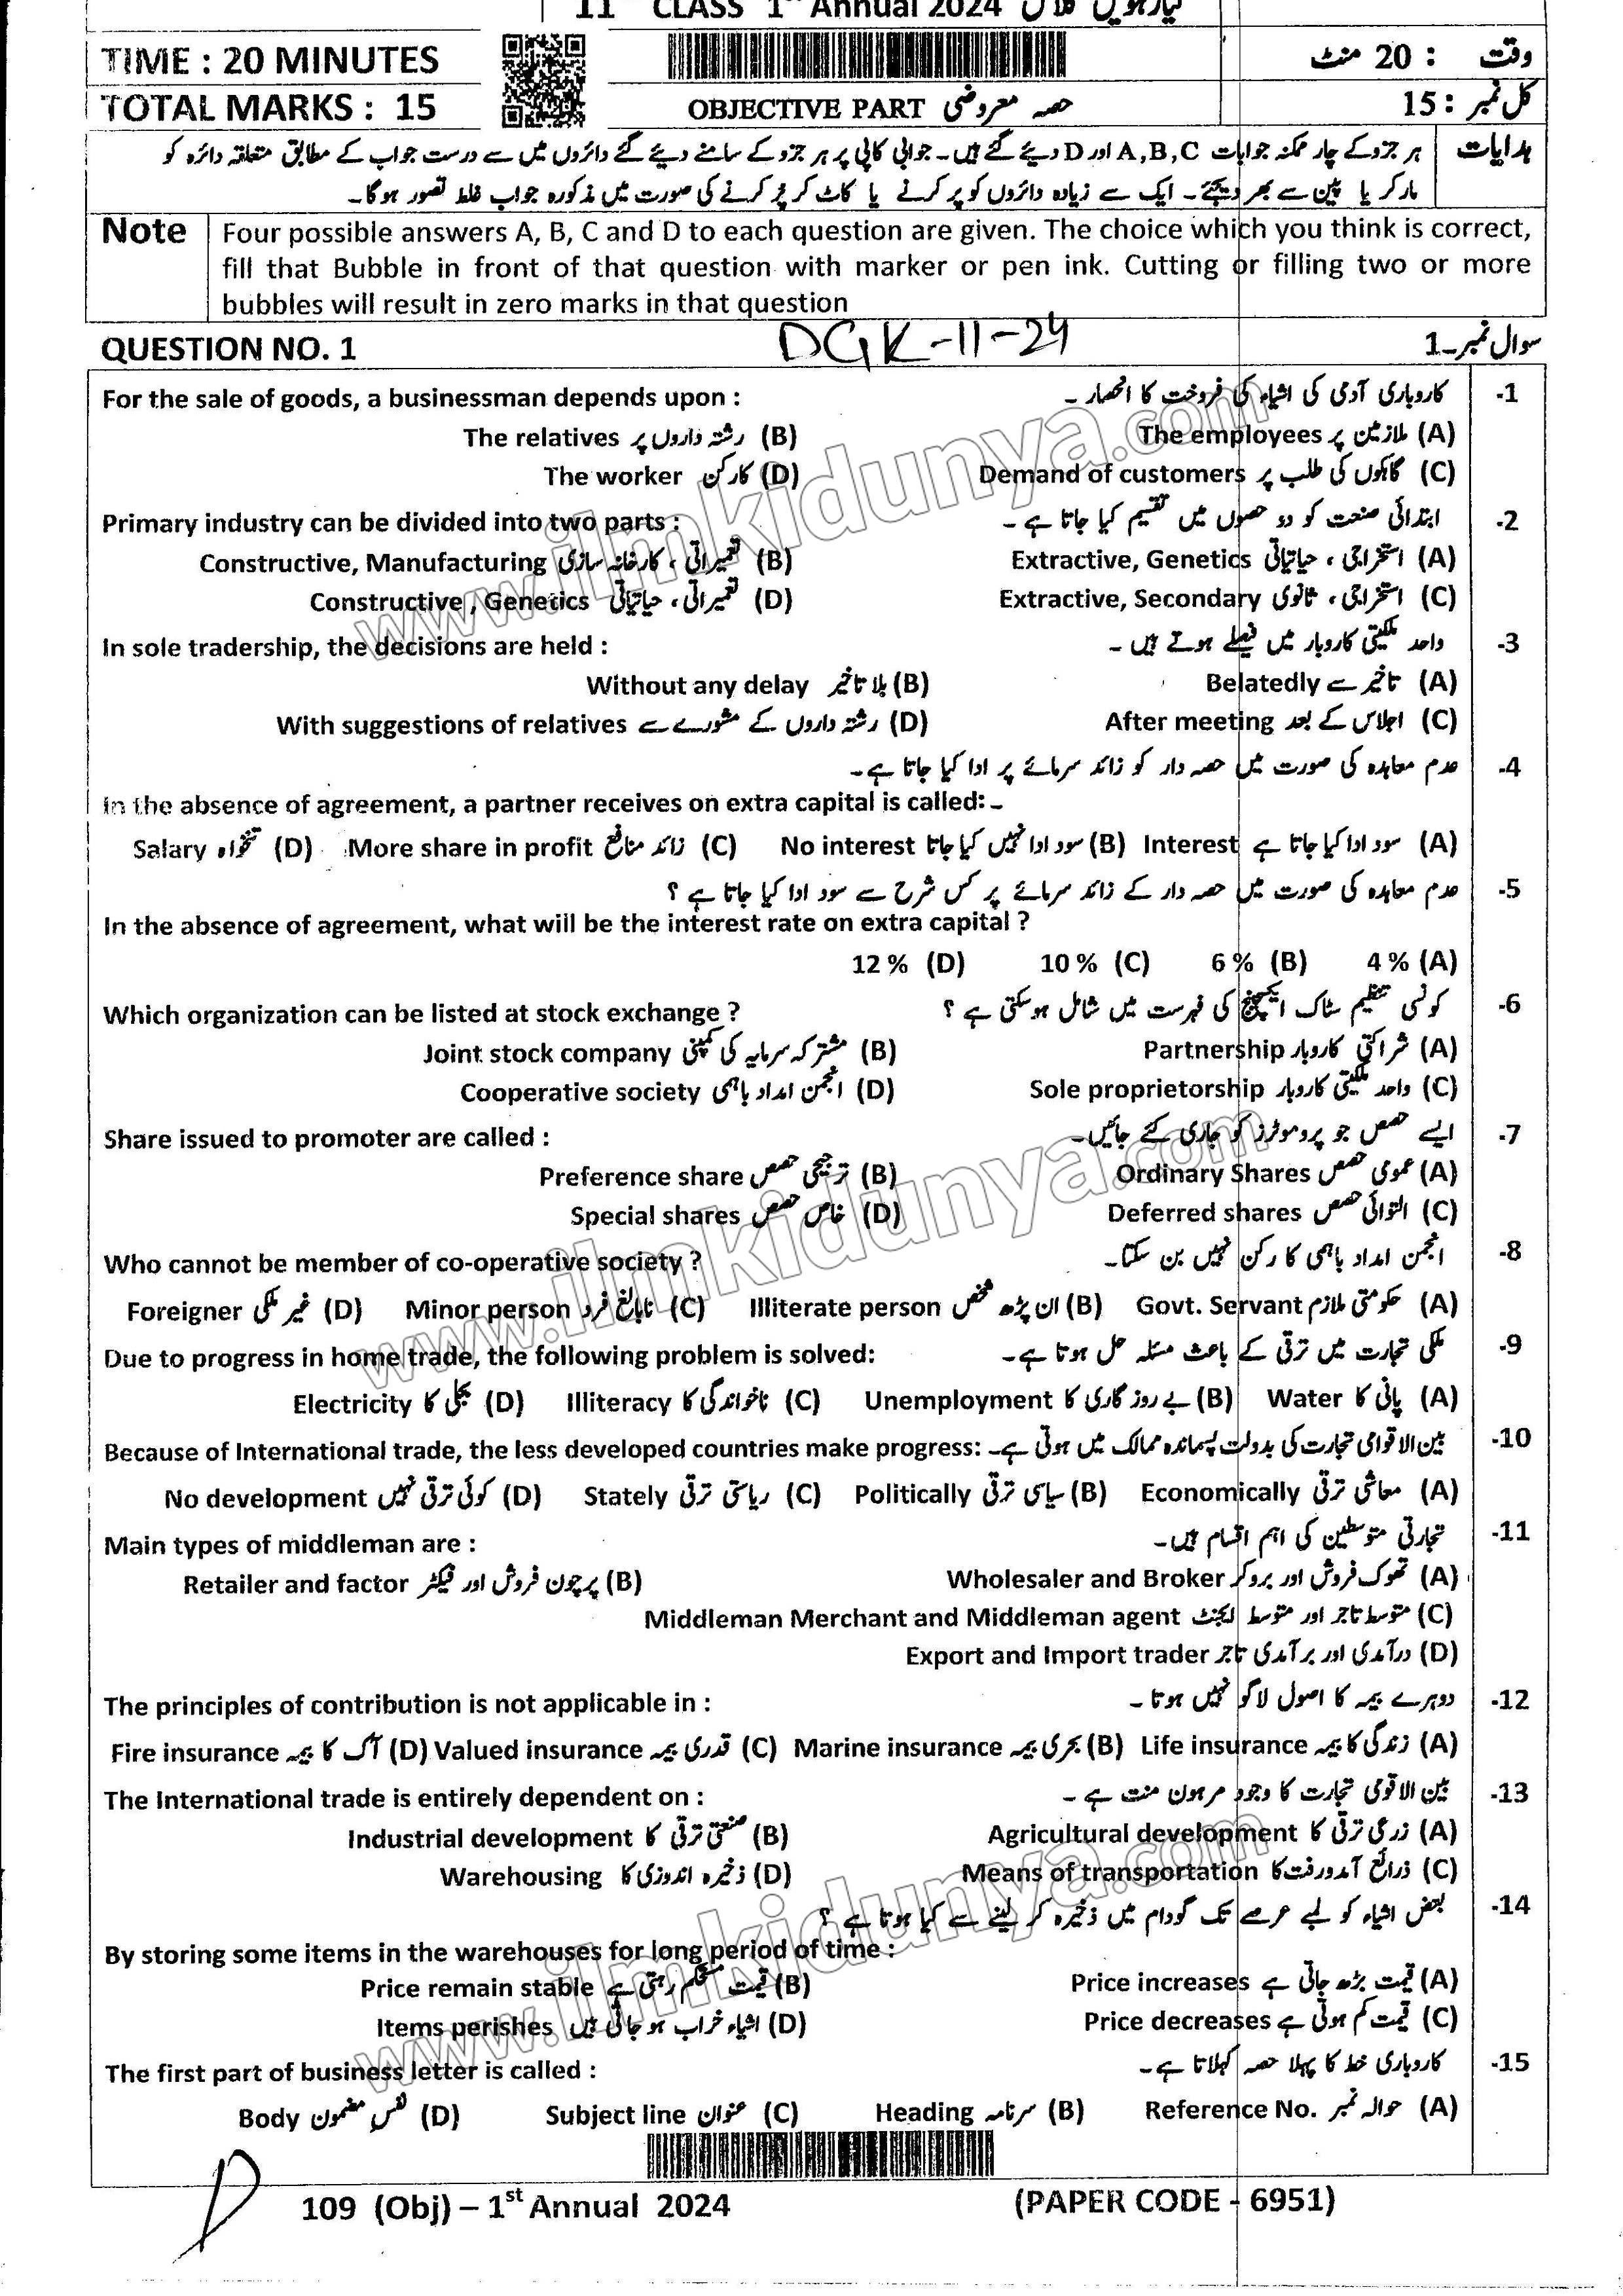 11 CLASS 1st Annual 2024 گیارہویں کلاس
TIME : 20 MINUTES وقت : 20 منٹ
TOTAL MARKS : 15 OBJECTIVE PART حصہ معروضی کل نمبر : 15
ہدایات ہر جزو کے چار ممکنہ جوابات A,B,C اور D دیئے گئے ہیں۔ جوابی کاپی پر ہر جزو کے سامنے دیئے گئے دائروں میں سے درست جواب کے مطابق متعلقہ دائرہ کو
مارکر یا پین سے بھر دیجئے۔ ایک سے زیادہ دائروں کو پر کرنے یا کاٹ کر پر کرنے کی صورت میں مذکورہ جواب غلط تصور ہوگا۔
Note Four possible answers A, B, C and D to each question are given. The choice which you think is correct,
fill that Bubble in front of that question with marker or pen ink. Cutting or filling two or more
bubbles will result in zero marks in that question
QUESTION NO. 1 DGK-11-24 سوال نمبر۔1
For the sale of goods, a businessman depends upon : کاروباری آدمی کی اشیاء کی فروخت کا انحصار ۔ -1
The relatives رشتہ داروں پر (B) The employees ملازمین پر (A)
The worker کارکن (D) Demand of customers گاہکوں کی طلب پر (C)
Primary industry can be divided into two parts : ابتدائی صنعت کو دو حصوں میں تقسیم کیا جاتا ہے ۔ -2
Constructive, Manufacturing تعمیراتی ، کارخانہ سازی (B) Extractive, Genetics استخراجی ، حیاتیاتی (A)
Constructive , Genetics تعمیراتی ، حیاتیاتی (D) Extractive, Secondary استخراجی ، ثانوی (C)
In sole tradership, the decisions are held : واحد ملکیتی کاروبار میں فیصلے ہوتے ہیں ۔ -3
Without any delay بلا تاخیر (B) Belatedly تاخیر سے (A)
With suggestions of relatives رشتہ داروں کے مشورے سے (D) After meeting اجلاس کے بعد (C)
عدم معاہدہ کی صورت میں حصہ دار کو زائد سرمائے پر ادا کیا جاتا ہے۔ -4
In the absence of agreement, a partner receives on extra capital is called:-
Salary تنخواہ (D) More share in profit زائد منافع (C) No interest سود ادا نہیں کیا جاتا (B) Interest سود ادا کیا جاتا ہے (A)
عدم معاہدہ کی صورت میں حصہ دار کے زائد سرمائے پر کس شرح سے سود ادا کیا جاتا ہے ؟ -5
In the absence of agreement, what will be the interest rate on extra capital ?
12 % (D) 10 % (C) 6 % (B) 4 % (A)
Which organization can be listed at stock exchange ? کونسی تنظیم سٹاک ایکسچینج کی فہرست میں شامل ہوسکتی ہے ؟ -6
Joint stock company مشترکہ سرمایہ کی کمپنی (B) Partnership شراکتی کاروبار (A)
Cooperative society انجمن امداد باہمی (D) Sole proprietorship واحد ملکیتی کاروبار (C)
Share issued to promoter are called : ایسے حصص جو پروموٹرز کو جاری کئے جائیں۔ -7
Preference share ترجیحی حصص (B) Ordinary Shares عمومی حصص (A)
Special shares خاص حصص (D) Deferred shares التوائی حصص (C)
Who cannot be member of co-operative society ? انجمن امداد باہمی کا رکن نہیں بن سکتا۔ -8
Foreigner غیر ملکی (D) Minor person نابالغ فرد (C) Illiterate person ان پڑھ شخص (B) Govt. Servant حکومتی ملازم (A)
Due to progress in home trade, the following problem is solved: ملکی تجارت میں ترقی کے باعث مسئلہ حل ہوتا ہے۔ -9
Electricity بجلی کا (D) Illiteracy ناخواندگی کا (C) Unemployment بے روز گاری کا (B) Water پانی کا (A)
Because of International trade, the less developed countries make progress: بین الاقوامی تجارت کی بدولت پسماندہ ممالک میں ہوتی ہے۔ -10
No development کوئی ترقی نہیں (D) Stately ریاستی ترقی (C) Politically سیاسی ترقی (B) Economically معاشی ترقی (A)
Main types of middleman are : تجارتی متوسطین کی اہم اقسام ہیں۔ -11
Retailer and factor پرچون فروش اور فیکٹر (B) Wholesaler and Broker تھوک فروش اور بروکر (A)
Middleman Merchant and Middleman agent متوسط تاجر اور متوسط ایجنٹ (C)
Export and Import trader درآمدی اور برآمدی تاجر (D)
The principles of contribution is not applicable in : دوہرے بیمہ کا اصول لاگو نہیں ہوتا ۔ -12
Fire insurance آگ کا بیمہ (D) Valued insurance قدری بیمہ (C) Marine insurance بحری بیمہ (B) Life insurance زندگی کا بیمہ (A)
The International trade is entirely dependent on : بین الاقوامی تجارت کا وجود مرہون منت ہے ۔ -13
Industrial development صنعتی ترقی کا (B) Agricultural development زرعی ترقی کا (A)
Warehousing ذخیرہ اندوزی کا (D) Means of transportation ذرائع آمدورفت کا (C)
بعض اشیاء کو لمبے عرصے تک گودام میں ذخیرہ کر لینے سے کیا ہوتا ہے ؟ -14
By storing some items in the warehouses for long period of time :
Price remain stable قیمت مستحکم رہتی ہے (B) Price increases قیمت بڑھ جاتی ہے (A)
Items perishes اشیاء خراب ہو جاتی ہیں (D) Price decreases قیمت کم ہوتی ہے (C)
The first part of business letter is called : کاروباری خط کا پہلا حصہ کہلاتا ہے۔ -15
Body نفس مضمون (D) Subject line عنوان (C) Heading سرنامہ (B) Reference No. حوالہ نمبر (A)
109 (Obj) – 1st Annual 2024 (PAPER CODE - 6951)
www.ilmkidunya.com
www.ilmkidunya.com
www.ilmkidunya.com